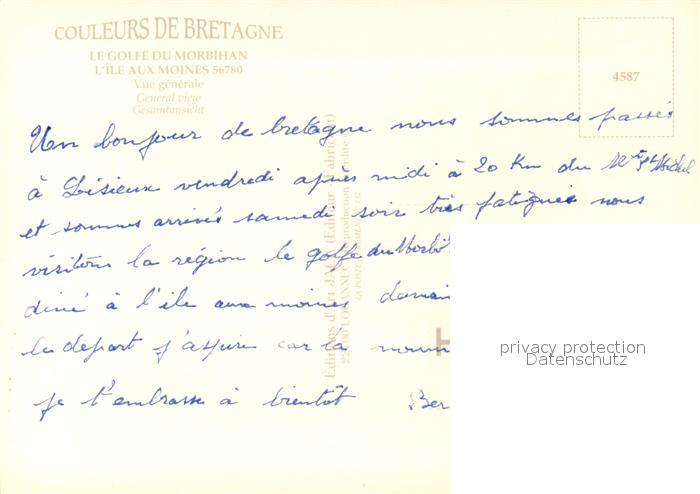 COULEURS DE BRETAGNE
LE GOLFE DU MORBIHAN
L'ÎLE AUX MOINES 56780
Vue générale
General view
Gesamtansicht
4587
Un bonjour de bretagne nous sommes passés
à Lisieux vendredi après midi à 20 Km du Mt St Michel
et sommes arrivés samedi soir très fatigués nous
visitons la région le golfe du Morbi
diné à l'ile aux moines
le départ j'aspire car la
je t'embrasse à bientôt Ber
Editions d'Art JACK (Editeur - Fabricant)
privacy protection
Datenschutz